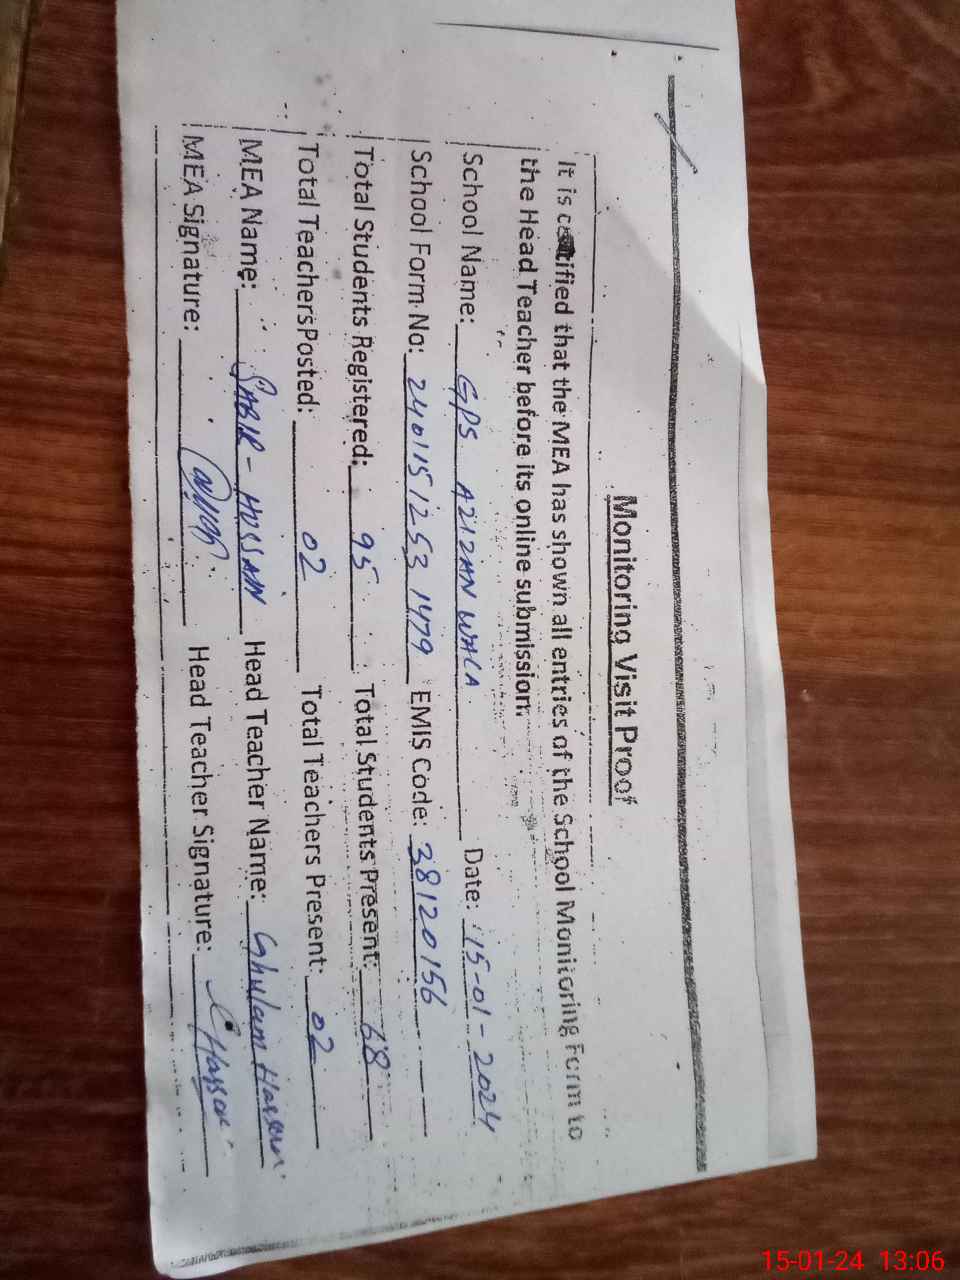 Monitoring Visit Proof
It is certified that the MEA has shown all entries of the School Monitoring Form to
the Head Teacher before its online submission.
School Name: GPS AZIZAN WALA Date: 15-01-2024
School Form No: 24011512531479 EMIS Code: 38120156
Total Students Registered: 95 Total Students Present: 68
Total Teachers Posted: 02 Total Teachers Present: 02
MEA Name: SABIR - HUSSAIN Head Teacher Name: Ghulam Hassan
MEA Signature: Head Teacher Signature: GHassan
15-01-24 13:06